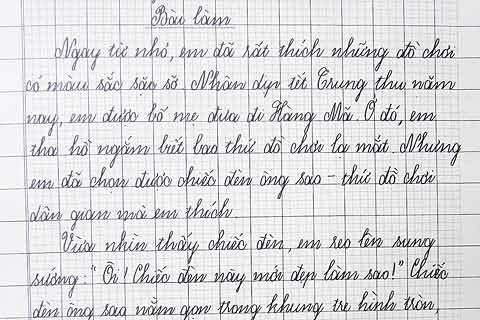 Bài làm
Ngay từ nhỏ, em đã rất thích những đồ chơi
có màu sắc sặc sỡ. Nhân dịp tết Trung thu năm
nay, em được bố mẹ đưa đi Hàng Mã. Ở đó, em
tha hồ ngắm biết bao thứ đồ chơi lạ mắt. Nhưng
em đã chọn được chiếc đèn ông sao - thứ đồ chơi
dân gian mà em thích.
Vừa nhìn thấy chiếc đèn, em reo lên sung
sướng: "Ôi! Chiếc đèn này mới đẹp làm sao!" Chiếc
đèn ông sao nằm gọn trong khung tre hình tròn,